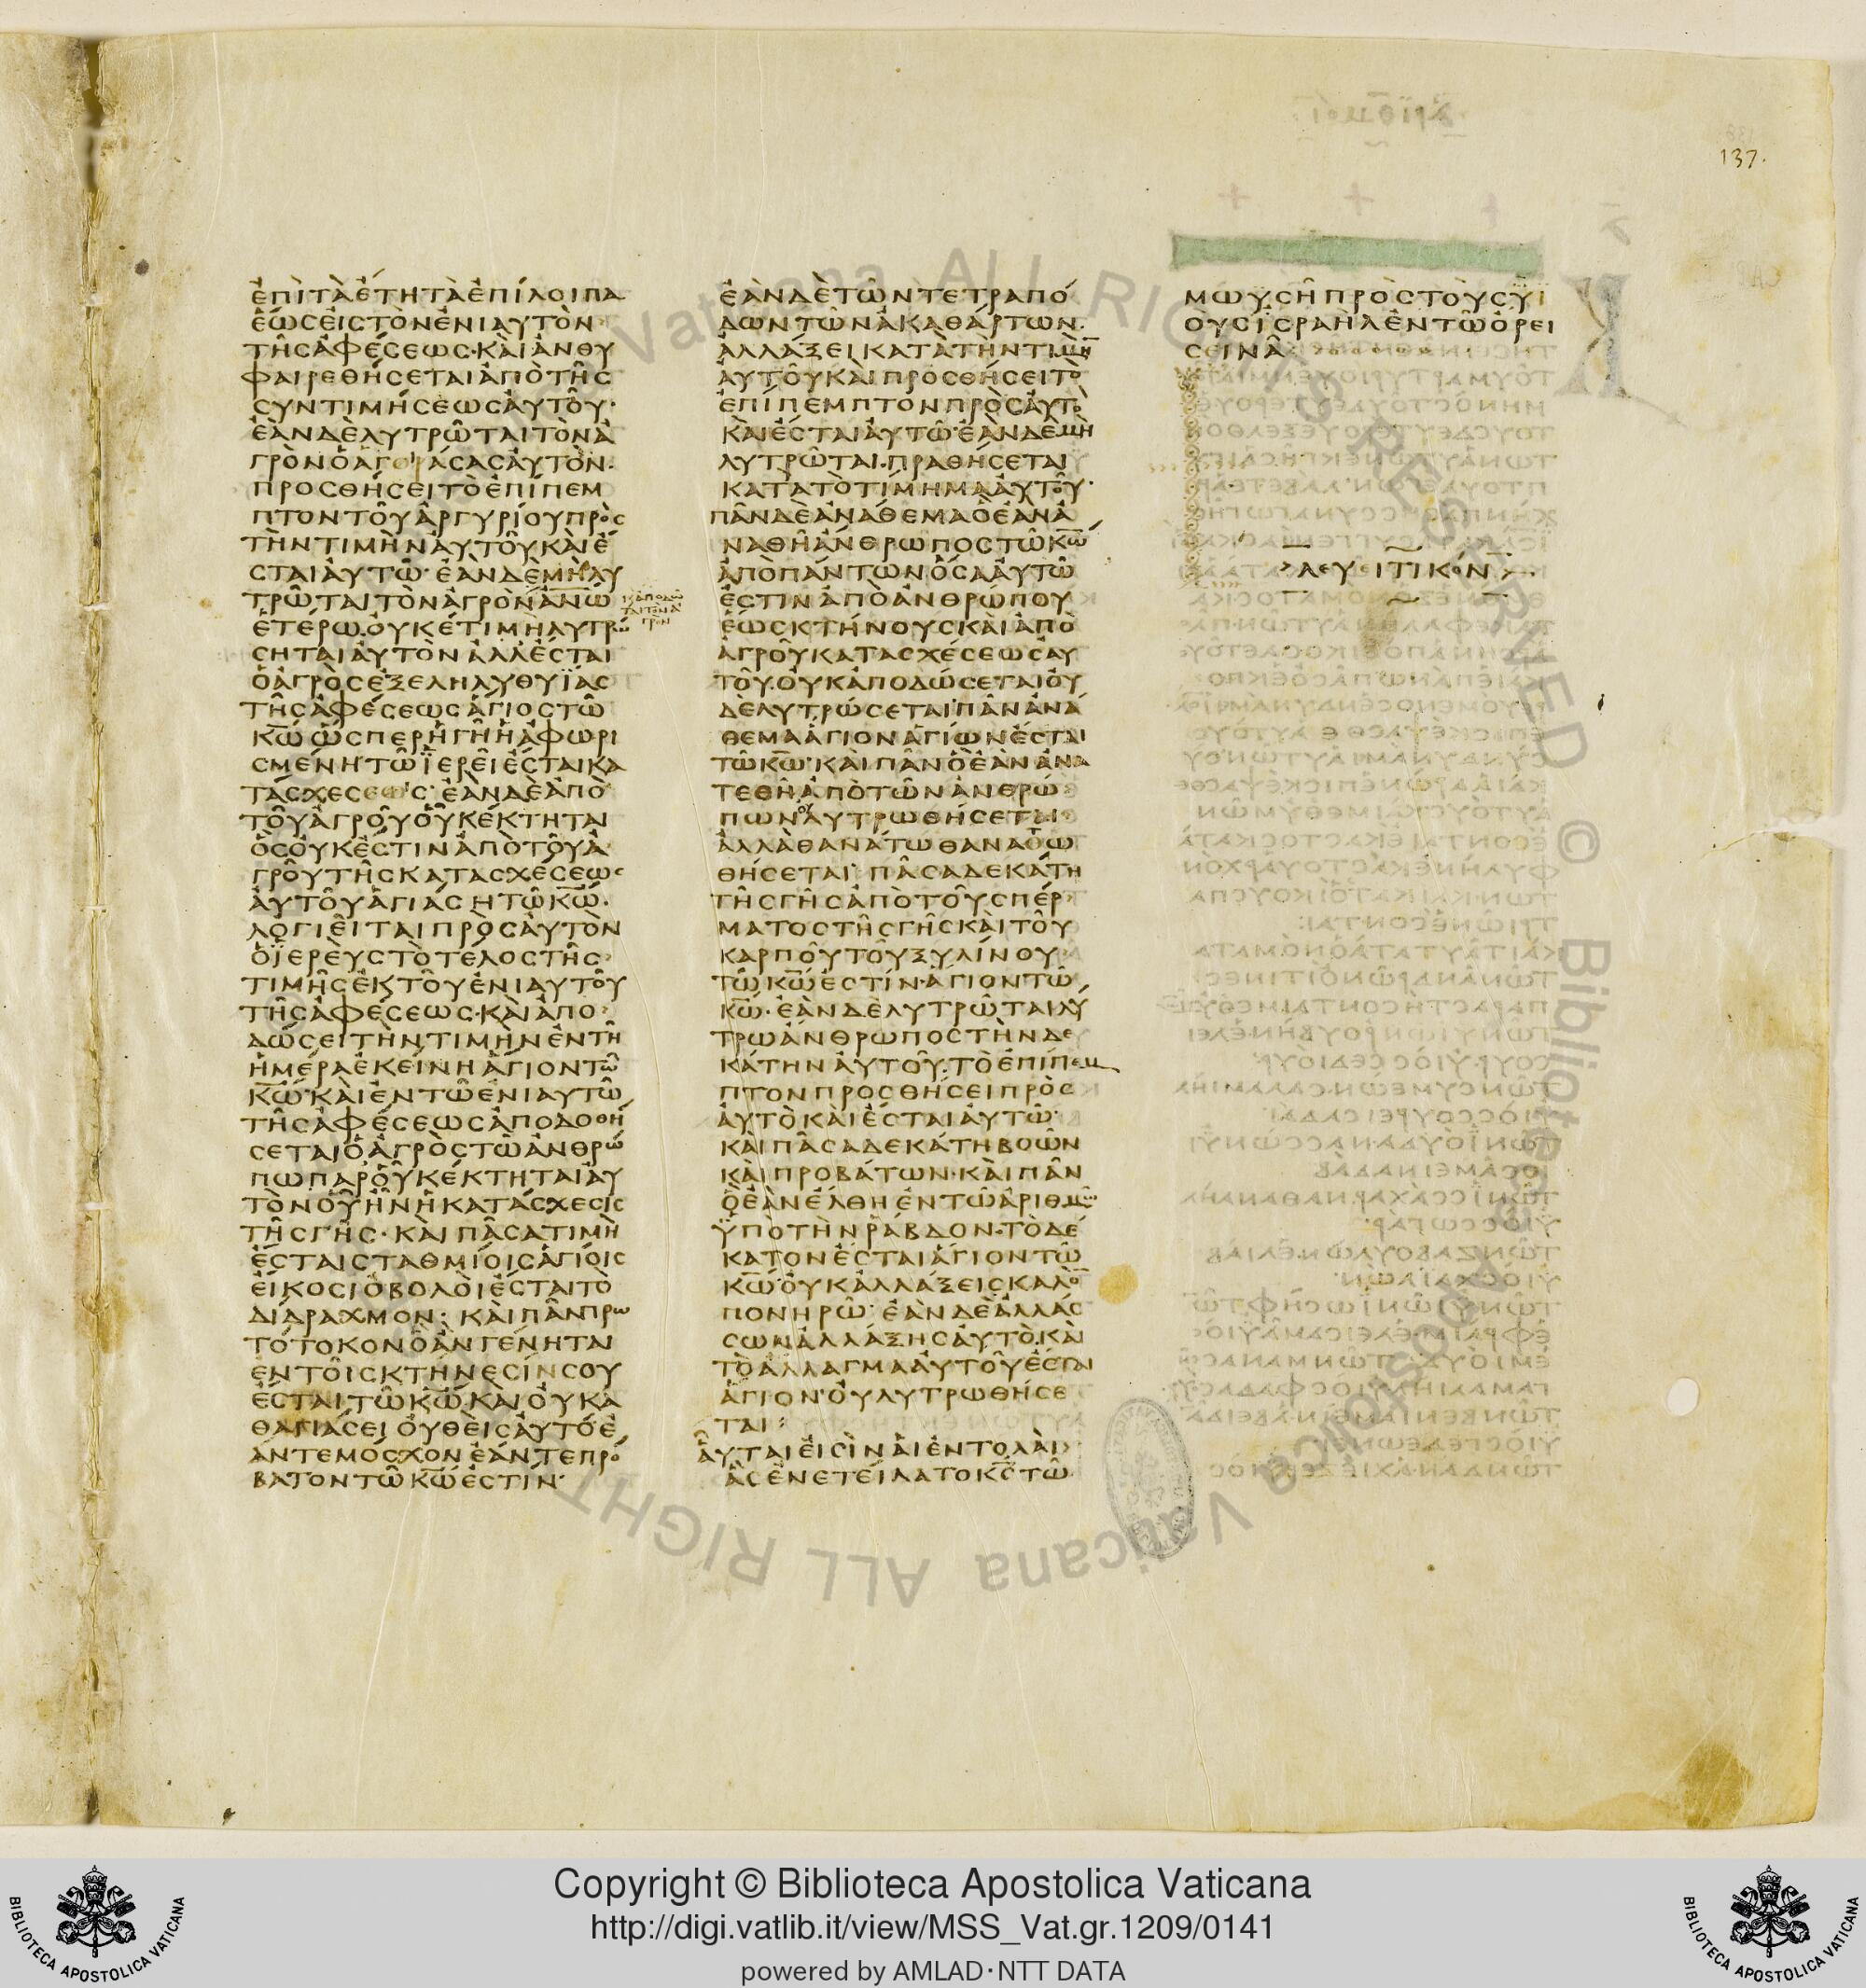 137.
ἐπὶ τὰ ἔτη τὰ ἐπίλοιπα
ἕως εἰς τὸν ἐνιαυτὸν
τῆς ἀφέσεως· καὶ ἀνθυ
φαιρεθήσεται ἀπὸ τῆς
συντιμήσεως αὐτοῦ·
ἐὰν δὲ λυτρῶται τὸν ἀ
γρὸν ὁ ἀγοράσας αὐτὸν·
προσθήσει τὸ ἐπίπεμ
πτον τοῦ ἀργυρίου πρὸς
τὴν τιμὴν αὐτοῦ καὶ ἔ
σται αὐτῶ· ἐὰν δὲ μὴ λυ
τρῶται τὸν ἀγρὸν ἀν̅ω̅
ἑτέρω· οὐκέτι μὴ λυτρώ
σηται αὐτὸν ἀλλ ἔσται
ὁ ἀγρὸς ἐξεληλυθυΐας
τῆς ἀφέσεως ἅγιος τῶ
κ̅ω̅ ὥσπερ ἡ γῆ ἡ ἀφωρι
σμένη· τῶ ϊερεῖ ἔσται κα
τάσχεσεως· ἐὰν δὲ ἀπὸ
τοῦ ἀγροῦ οὗ κέκτηται
ὃς οὐκ ἔστιν ἀπὸ τοῦ ἀ
γροῦ τῆς κατασχέσεως
αὐτοῦ ἁγιάση τῶ κ̅ω̅·
λογιεῖται πρὸς αὐτὸν
ὁ ϊερεὺς τὸ τέλος τῆς
τιμῆς ἐκ τοῦ ἐνιαυτοῦ
τῆς ἀφέσεως· καὶ ἀπο
δώσει τὴν τιμὴν ἐν τῆ
ἡμέρα ἐκείνη ἅγιον τῶ
κ̅ω̅· καὶ ἐν τῶ ἐνιαυτῶ
τῆς ἀφέσεως ἀποδοθή
σεται ὁ ἀγρὸς τῶ ἀνθρώ
πω παρ οὗ κέκτηται αὐ
τὸν οὗ ἦν ἡ κατάσχεσις
τῆς γῆς· καὶ πᾶσα τιμὴ
ἔσται σταθμίοις ἁγίοις
εἴκοσι ὀβολοὶ ἔσται τὸ
δίδραχμον· καὶ πᾶν πρω
τότοκον ὃ ἂν γένηται
ἐν τοῖς κτήνεσίν σου
ἔσται τῶ κ̅ω̅· καὶ οὐ κα
θαγιάσει οὐθεὶς αὐτό· ἐ
άν τε μόσχον ἐάν τε πρό
βατον τῶ κ̅ω̅ ἐστίν·
ἐὰν δὲ τῶν τετραπό
δων τῶν ἀκαθάρτων·
ἀλλάξει κατὰ τὴν τιμὴν
αὐτοῦ καὶ προσθήσει τὸ
ἐπίπεμπτον πρὸς αὐτὸ
καὶ ἔσται αὐτῶ· ἐὰν δὲ μὴ
λυτρῶται· πραθήσεται
κατὰ τὸ τίμημα αὐτοῦ·
πᾶν δὲ ἀνάθεμα ὃ ἐὰν ἀ
ναθῆ ἄνθρωπος τῶ κ̅ω̅
ἀπὸ πάντων ὅσα αὐτῶ
ἐστιν ἀπὸ ἀνθρώπου
ἕως κτήνους καὶ ἀπὸ
ἀγροῦ κατασχέσεως αὐ
τοῦ· οὐκ ἀποδώσεται οὐ
δὲ λυτρώσεται· πᾶν ἀνά
θεμα ἅγιον ἁγίων ἔσται
τῶ κ̅ω̅· καὶ πᾶν ὃ ἐὰν ἀνα
τεθῆ ἀπὸ τῶν ἀνθρώ
πων οὐ λυτρωθήσεται·
ἀλλὰ θανάτω θανατω
θήσεται· πᾶσα δεκάτη
τῆς γῆς ἀπὸ τοῦ σπέρ
ματος τῆς γῆς καὶ τοῦ
καρποῦ τοῦ ξυλίνου
τῶ κ̅ω̅ ἐστίν· ἅγιον τῶ
κ̅ω̅· ἐὰν δὲ λυτρῶται λύ
τρω ἄνθρωπος τὴν δε
κάτην αὐτοῦ· τὸ ἐπίπεμ
πτον προσθήσει πρὸς
αὐτὸ καὶ ἔσται αὐτῶ·
καὶ πᾶσα δεκάτη βοῶν
καὶ προβάτων· καὶ πᾶν
ὃ ἐὰν ἔλθη ἐν τῶ ἀριθμῶ
ϋπὸ τὴν ῥάβδον· τὸ δέ
κατον ἔσται ἅγιον τῶ
κ̅ω̅· οὐκ ἀλλάξεις καλὸ̅
πονηρῶ· ἐὰν δὲ ἀλλάσ
σων ἀλλάξης αὐτὸ· καὶ
τὸ ἄλλαγμα αὐτοῦ ἔσται
ἅγιον· οὐ λυτρωθήσε
ται:
αὗταί εἰσὶν αἱ ἐντολαὶ
ἃς ἐνετείλατο κ̅ς̅ τῶ
μωυσῆ πρὸς τοὺς υϊ
οὺς ἰσραὴλ ἐν τῶ ὄρει
σεινᾶ
λευειτικόν
Copyright © Biblioteca Apostolica Vaticana
http://digi.vatlib.it/view/MSS_Vat.gr.1209/0141
powered by AMLAD·NTT DATA
BIBLIOTECA APOSTOLICA VATICANA
BIBLIOTECA APOSTOLICA VATICANA